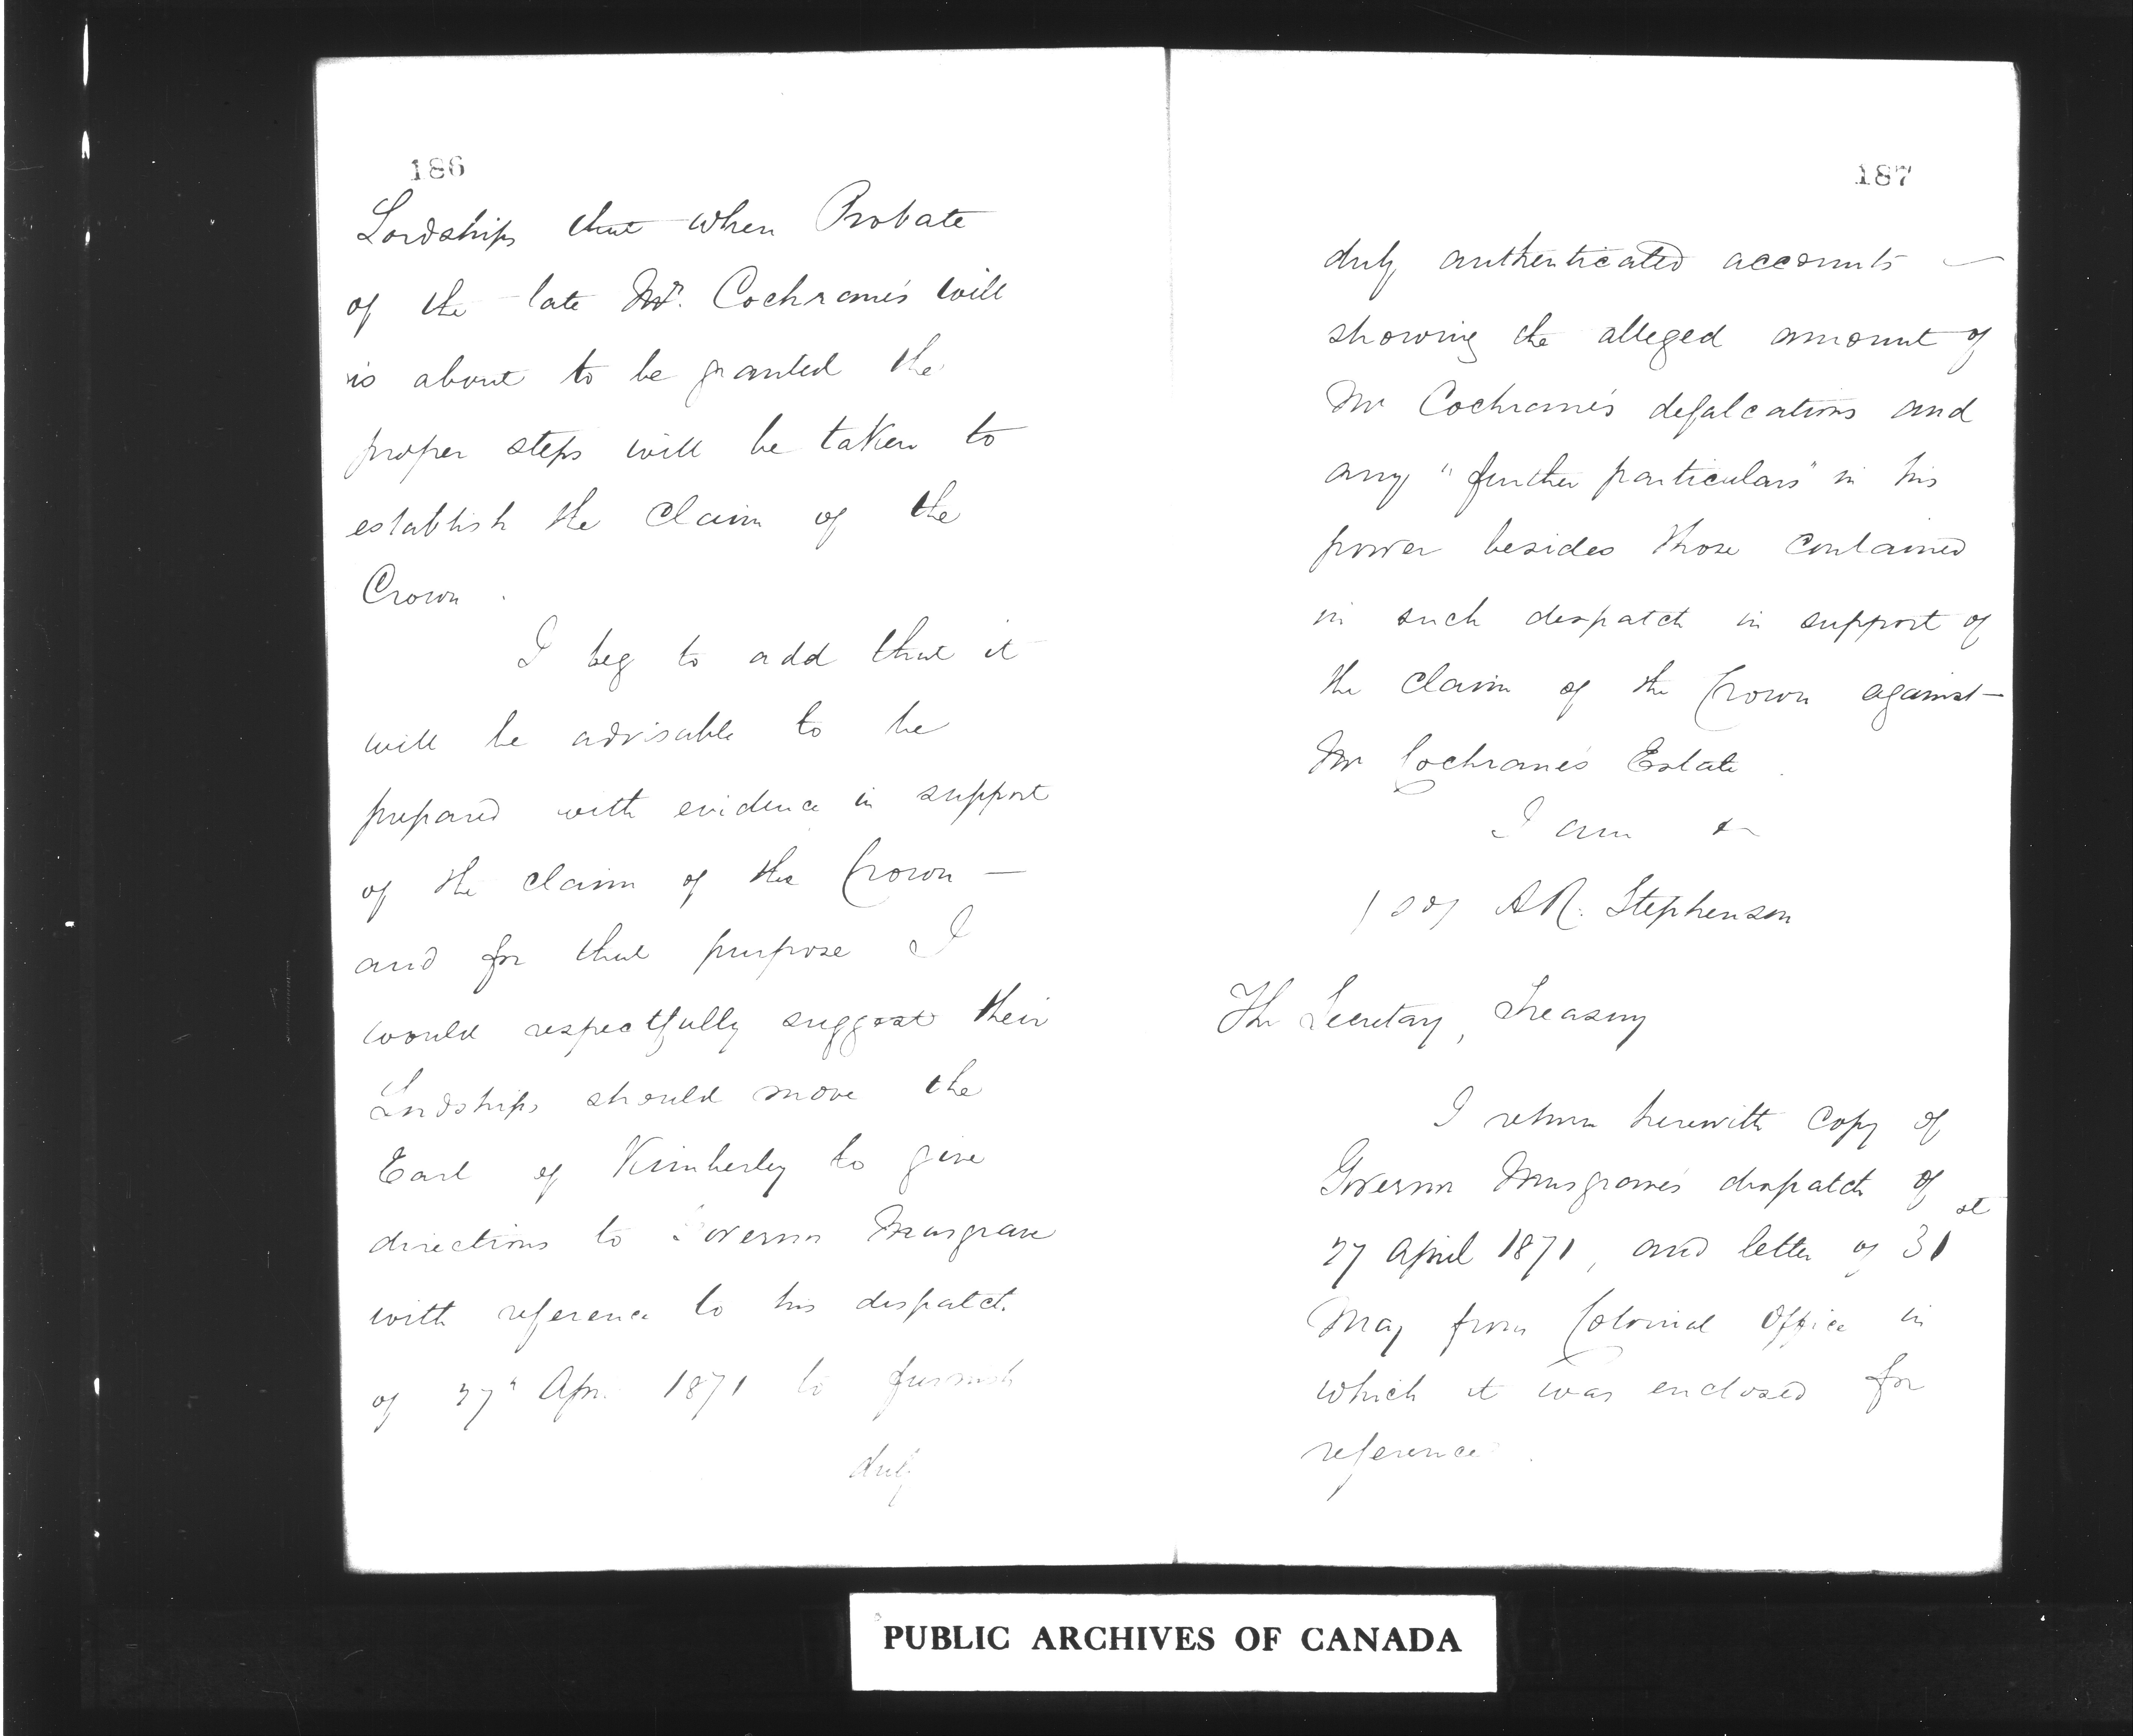 186
Lordships that when Probate
of the late Mr. Cochrane's will
is about to be granted the
proper steps will be taken to
establish the claim of the
Crown.
I beg to add that it
will be advisable to be
prepared with evidence in support
of the claim of the Crown —
and for that purpose I
would respectfully suggest their
Lordships should move the
Earl of Kimberley to give
directions to Governor Musgrave
with reference to his despatch
of 27" Apr. 1871 to furnish
duly
187
duly authenticated accounts —
showing the alleged amount of
Mr Cochrane's defalcations and
any "further particulars" in his
power besides those contained
in such despatch in support of
the claim of the Crown against
Mr Cochrane's Estate.
I am &c
A.K. Stephenson
The Secretary, Treasury
I return herewith copy of
Governor Musgrave's despatch of
27 April 1871, and letter of 31st
May from Colonial Office in
which it was enclosed for
reference.
PUBLIC ARCHIVES OF CANADA